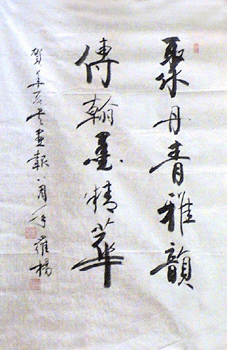 聚丹青雅韻
傳翰墨精華
賀 畫報 八周年 楊